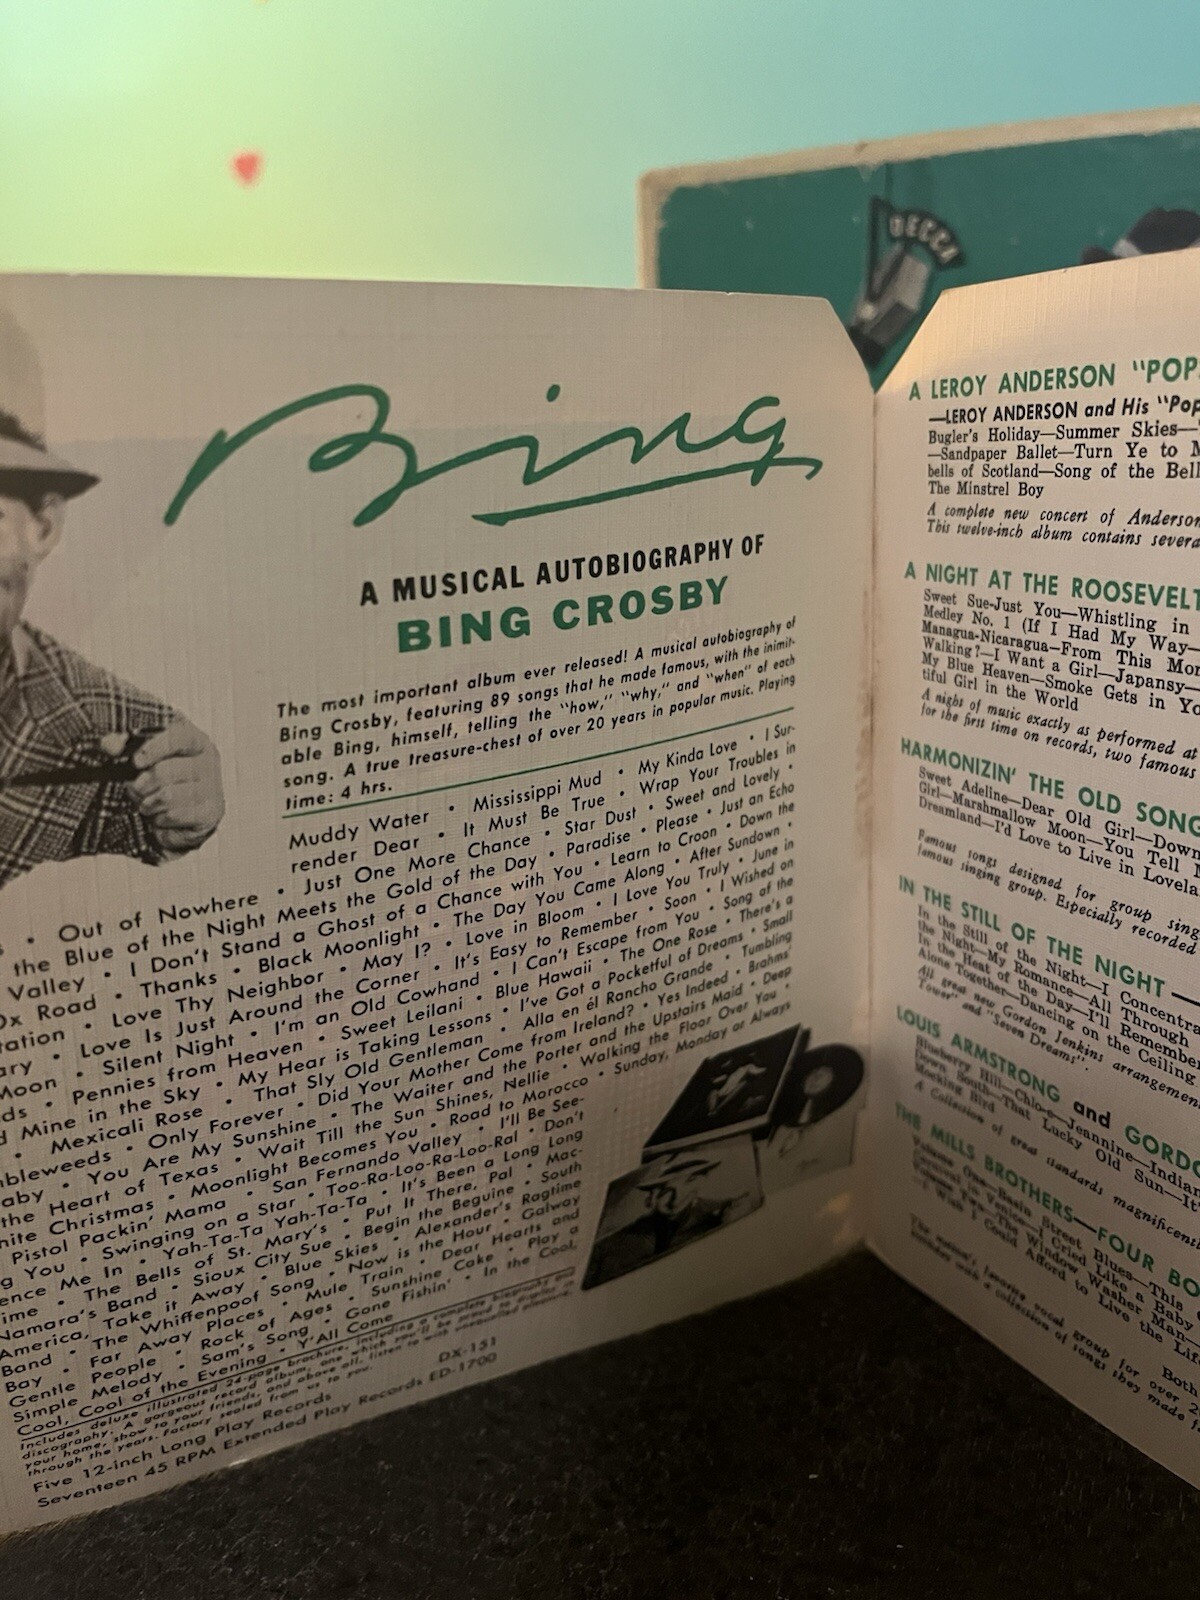 DECCA
Bing
A MUSICAL AUTOBIOGRAPHY OF
BING CROSBY
The most important album ever released! A musical autobiography of
Bing Crosby, featuring 89 songs that he made famous, with the inimit-
able Bing, himself, telling the "how," "why," and "when" of each
song. A true treasure-chest of over 20 years in popular music. Playing
time: 4 hrs.
Muddy Water • Mississippi Mud • My Kinda Love • I Sur-
render Dear • It Must Be True • Wrap Your Troubles in
• Out of Nowhere • Just One More Chance • Star Dust • Sweet and Lovely •
the Blue of the Night Meets the Gold of the Day • Paradise • Please • Just an Echo
Valley • I Don't Stand a Ghost of a Chance with You • Learn to Croon • Down the
Ox Road • Thanks • Black Moonlight • The Day You Came Along • After Sundown •
Love Thy Neighbor • May I? • Love in Bloom • I Love You Truly • June in
• Love Is Just Around the Corner • It's Easy to Remember • Soon • I Wished on
Moon • Silent Night • I'm an Old Cowhand • I Can't Escape from You • Song of the
• Pennies from Heaven • Sweet Leilani • Blue Hawaii • The One Rose • There's a
Mine in the Sky • My Hear is Taking Lessons • I've Got a Pocketful of Dreams • Small
• Mexicali Rose • That Sly Old Gentleman • Alla en él Rancho Grande • Tumbling
• Only Forever • Did Your Mother Come from Ireland? • Yes Indeed • Brahms'
• You Are My Sunshine • The Waiter and the Porter and the Upstairs Maid • Deep
the Heart of Texas • Wait Till the Sun Shines, Nellie • Walking the Floor Over You •
Christmas • Moonlight Becomes You • Road to Morocco • Sunday, Monday or Always
Pistol Packin' Mama • San Fernando Valley • I'll Be See-
You • Swinging on a Star • Too-Ra-Loo-Ra-Loo-Ral • Don't
Me In • Yah-Ta-Ta Yah-Ta-Ta • It's Been a Long Long
• The Bells of St. Mary's • Put It There, Pal • Mac-
Namara's Band • Sioux City Sue • Begin the Beguine • South
America, Take it Away • Blue Skies • Alexander's Ragtime
Band • The Whiffenpoof Song • Now is the Hour • Galway
Bay • Far Away Places • Mule Train • Dear Hearts and
Gentle People • Rock of Ages • Sunshine Cake • Play a
Simple Melody • Sam's Song • Gone Fishin' • In the Cool,
Cool, Cool of the Evening • Y'All Come
Includes deluxe illustrated 24-page brochure, including a complete biography and
discography. A gorgeous record album, one which you'll be proud to display in
your home, show to your friends, and above all, listen to with
through the years. Factory sealed from us to you.
Five 12-inch Long Play Records DX-151
Seventeen 45 RPM Extended Play Records ED-1700
A LEROY ANDERSON "POP
—LEROY ANDERSON and His "Pop
Bugler's Holiday—Summer Skies—
—Sandpaper Ballet—Turn Ye to
bells of Scotland—Song of the Bell
The Minstrel Boy
A complete new concert of Anderson
This twelve-inch album contains severa
A NIGHT AT THE ROOSEVELT
Sweet Sue-Just You—Whistling in
Medley No. 1 (If I Had My Way—
Managua-Nicaragua—From This Mo
Walking?—I Want a Girl—Japansy—
My Blue Heaven—Smoke Gets in Yo
tiful Girl in the World
A night of music exactly as performed at
for the first time on records, two famous
HARMONIZIN' THE OLD SONG
Sweet Adeline—Dear Old Girl—Down
Girl—Marshmallow Moon—You Tell
Dreamland—I'd Love to Live in Lovela
Famous songs designed for group sing
famous singing group. Especially recorded
IN THE STILL OF THE NIGHT—
In the Still of the Night—I Concentra
the Night—My Romance—All Through
In the Heat of the Day—I'll Remember
Alone Together—Dancing on the Ceiling
All great new Gordon Jenkins arrangement
Tower" and "Seven Dreams".
LOUIS ARMSTRONG and GORDO
Blueberry Hill—Chlo-e—Jeannine—Indian
Down South—That Lucky Old Sun—It'
Mocking Bird
A Collection of great standards magnificent
THE MILLS BROTHERS—FOUR BO
Volume One—Basin Street Blues—This
Carnival in Venice—I Cried Like a Baby
The Window Washer Man—
—I Wish I Could Afford to Live the Lif
Both
The nation's favorite vocal group for over 2
birthday with a collection of songs they made f